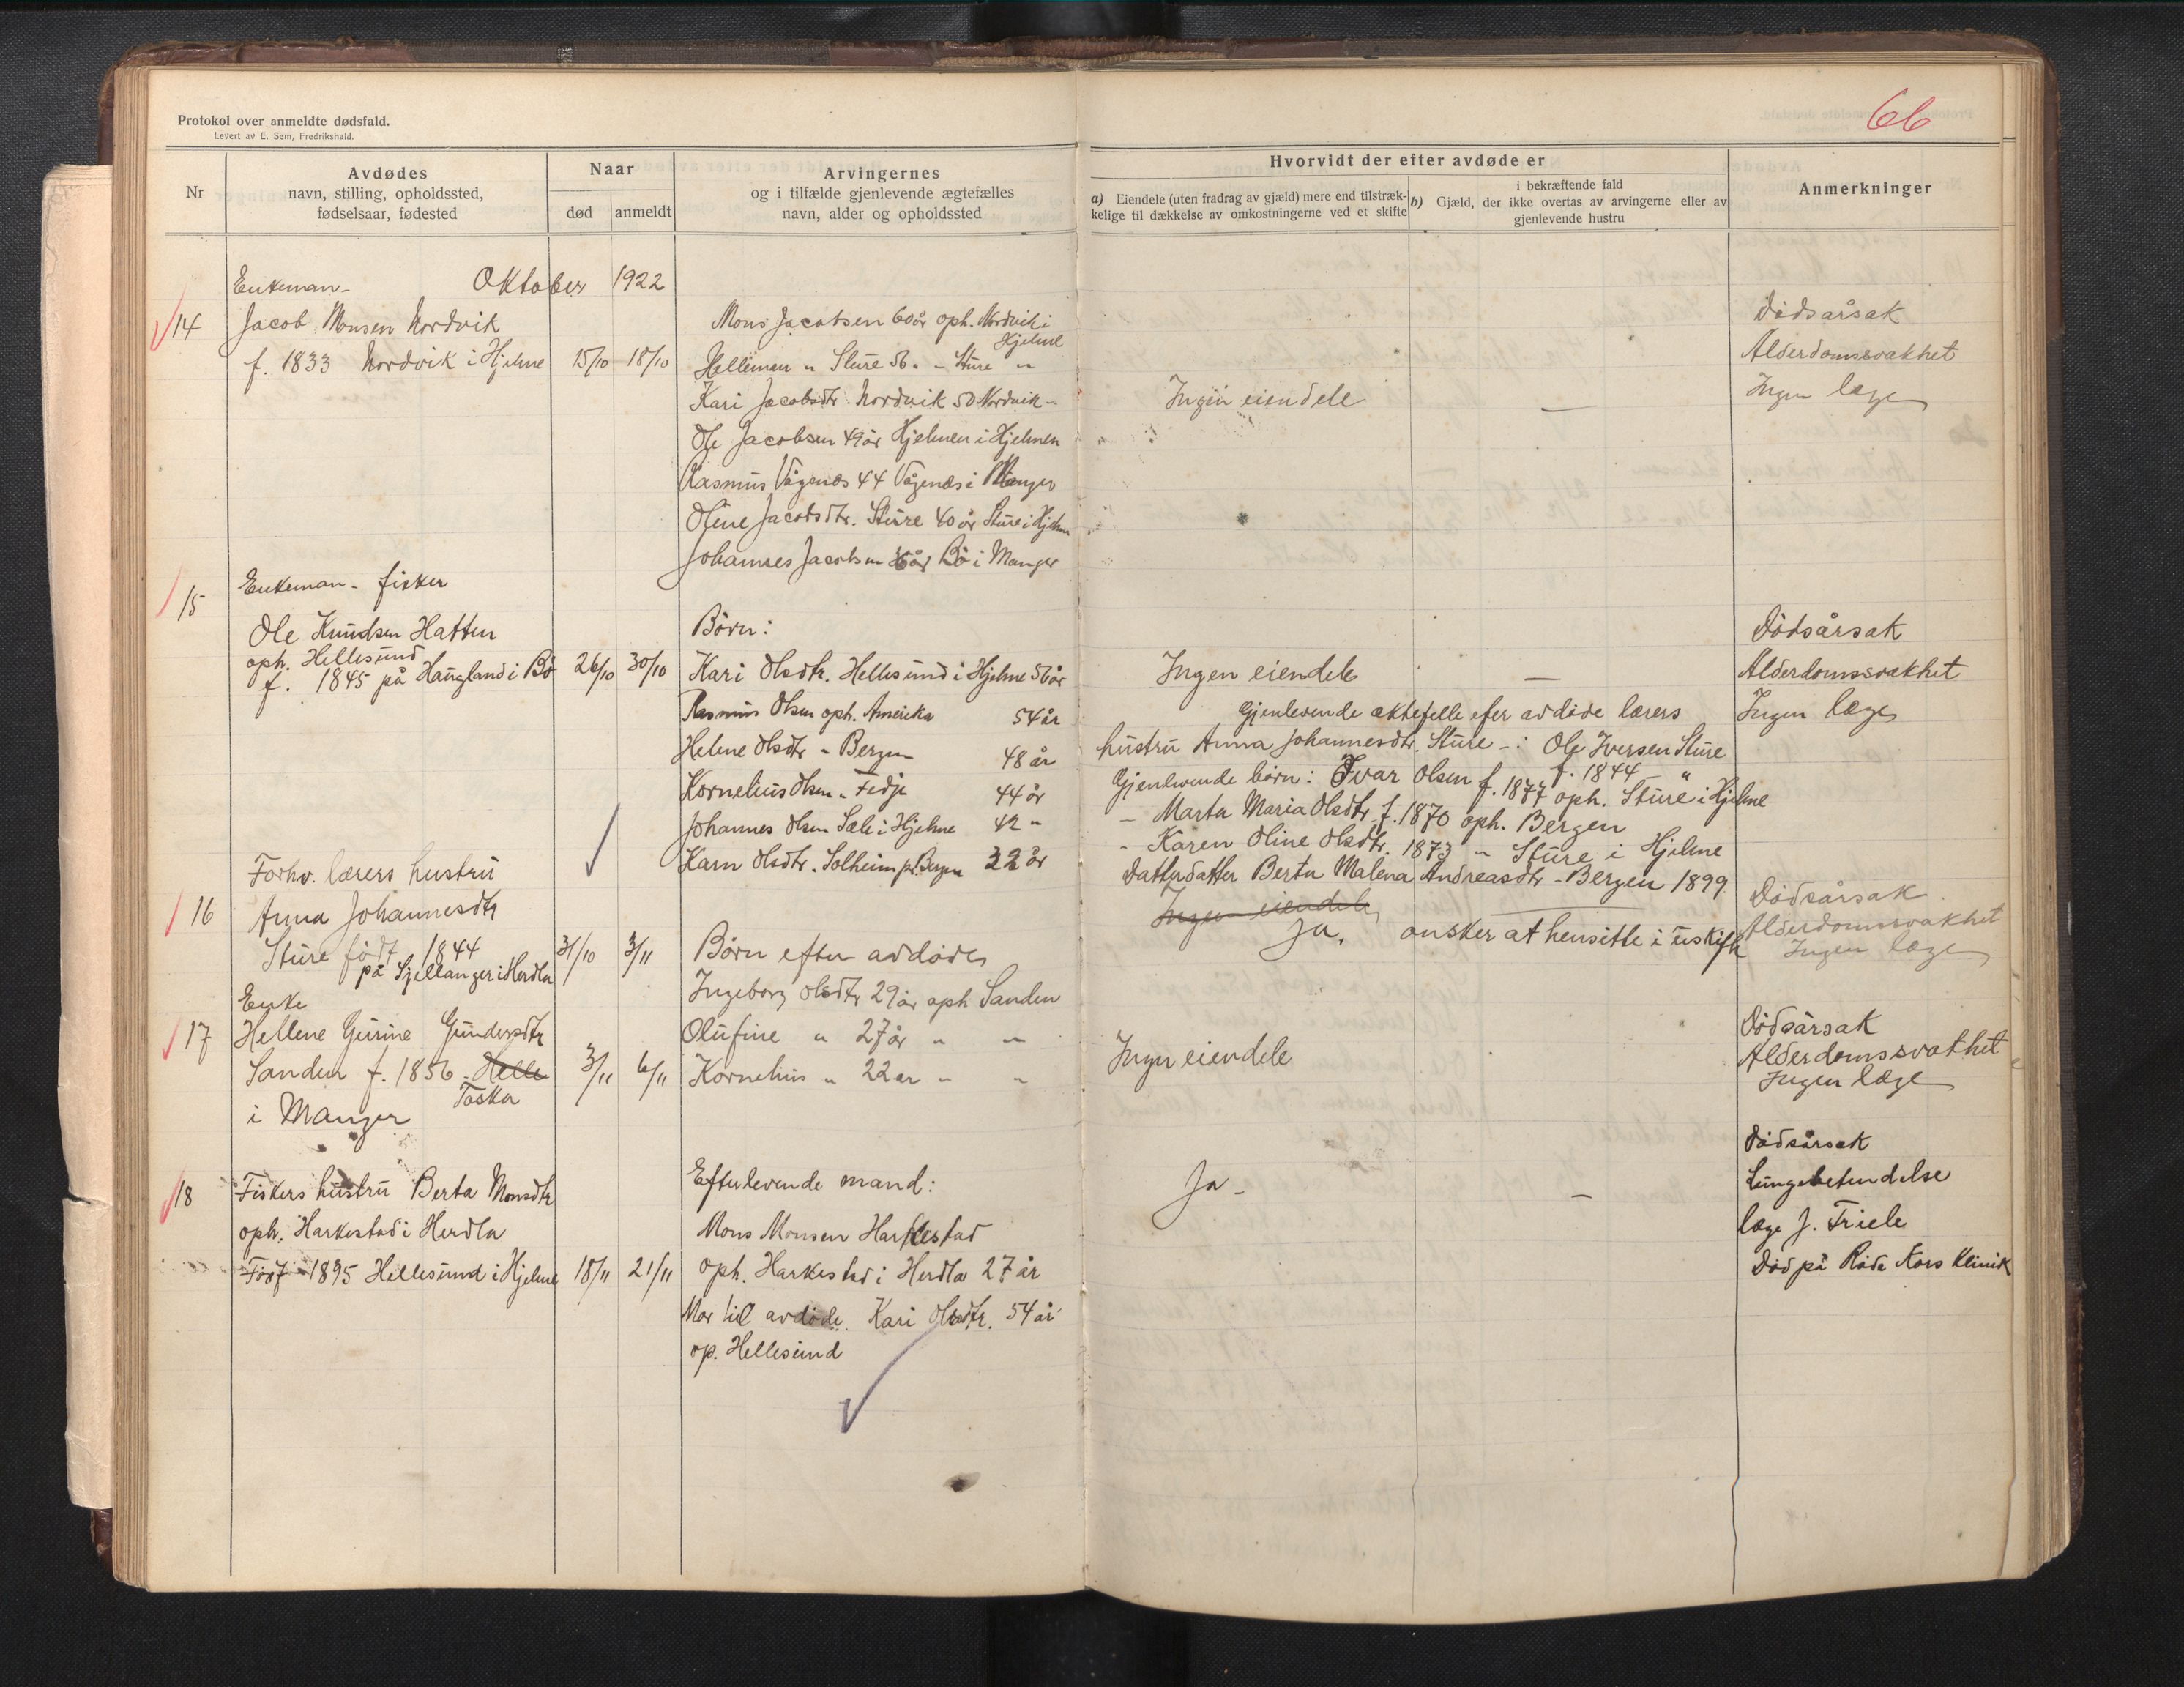 Protokol over anmeldte dødsfald.
Levert av E. Sem, Fredrikshald.
66
Nr
Avdødes
navn, stilling, opholdssted,
fødselsaar, fødested
Naar
død
anmeldt
Arvingernes
og i tilfælde gjenlevende ægtefælles
navn, alder og opholdssted
Hvorvidt der efter avdøde er
a) Eiendele (uten fradrag av gjæld) mere end tilstræk-
kelige til dækkelse av omkostningerne ved et skifte
i bekræftende fald
b) Gjæld, der ikke overtas av arvingerne eller av
gjenlevende hustru
Anmerkninger
Oktober 1922
Enkeman -
14 Jacob Monsen Nordvik
f. 1833 Nordvik i Hjelme 15/10 18/10
Mons Jacobsen 60 år oph. Nordvik i
Hjelme
Hellemen " Sture 56 " - Sture "
Kari Jacobsdtr. Nordvik 50 Nordvik -
Ole Jacobsen 49 år Hjelmen i Hjelmen
Rasmus Vågenes 44 Vågenes i Manger
Oline Jacobsdtr. Sture 40 år Sture i Hjelme
Johannes Jacobsen 36 år Bø i Manger
Ingen eiendele —
Dødsårsak
Alderdomssvakhet
Ingen læge
15 Enkeman - fisker
Ole Knudsen Hatten
oph. Hellesund
f. 1845 på Haugland i Bø 26/10 30/10
Børn:
Kari Olsdtr. Hellesund i Hjelme 56 år
Rasmus Olsen oph. Amerika 54 år
Helene Olsdtr " Bergen 48 år
Kornelius Olsen " Fedje 44 år
Johannes Olsen Sæle i Hjelme 42 "
Karn Olsdtr. Solheim pr. Bergen 32 år
Ingen eiendele —
Dødsårsak
Alderdomssvakhet
Ingen læge
Gjenlevende ektefelle efer avdøde lærers
hustru Anna Johannesdtr. Sture -: Ole Iversen Sture
f. 1844 "
Gjenlevende børn: Ivar Olsen f. 1877 oph. Sture i Hjelme
- Marta Maria Olsdtr f. 1870 oph. Bergen
- Karen Oline Olsdtr. 1873 " Sture i Hjelme
Datterdatter Berta Malena Andreasdtr - Bergen 1899
Forhv. lærers hustru
16 Anna Johannesdtr
Sture født 1844
på Sjellanger i Herdla 31/10 3/11
Ingen eiendele
Ja. ønsker at hensitte i uskifte
Dødsårsak
Alderdomsvakhet
Ingen læge
Enke
17 Hellene Gurine Gundersdtr
Sanden f. 1856 - Helle
Toska
i Manger 3/11 6/11
Børn efter avdøde
Ingeborg Olsdtr 29 år oph Sanden
Olufine " 27 år " "
Kornelius " 22 ar " "
Ingen eiendele
Dødsårsak
Alderdomssvakhet
Ingen læge
18 Fiskers hustru Berta Monsdtr
oph. Harkestad i Herdla
Født 1895 Hellesund i Hjelme 18/11 21/11
Efterlevende mand:
Mons Monsen Harkestad
oph. Harkestad i Herdla 27 år
Mor til avdøde. Kari Olsdtr. 54 år
op. Hellesund
Ja - —
Dødsårsak
Lungebetendelse
læge J. Friele
Død på Røde Kors Klinik